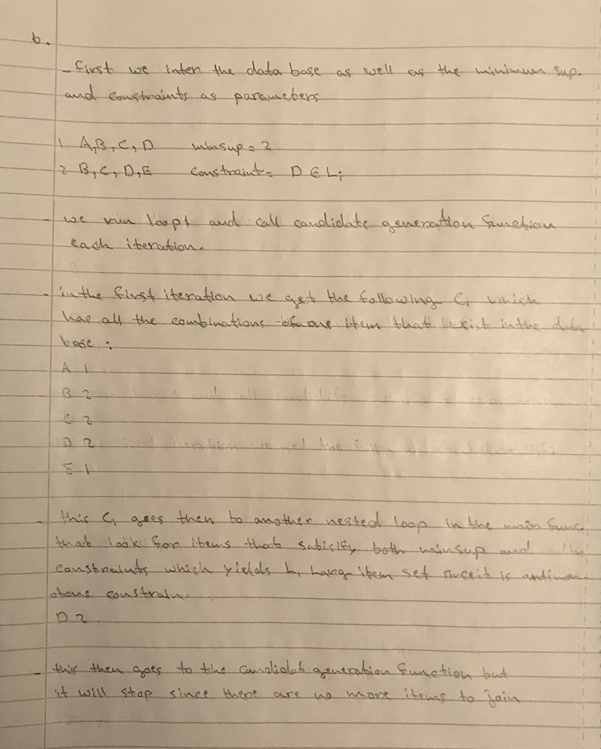 b.
- first we inter the data base as well as the minimum sup.
and constraints as parameters
1 A,B,C,D minsup = 2
2 B,C,D,E constraint = D ∈ Li
- we run loop1 and call candidate generation function
each iteration.
- in the first iteration we get the following C1 which
has all the combinations of one item that exist in the data
base :
A 1
B 2
C 2
D 2
E 1
- this C1 goes then to another nested loop in the main func
that look for items that satisify both minsup and the
constraints which yields L1 Large item set since it is antimon
otone constrain.
D 2.
- this then goes to the candidate generation function but
it will stop since there are no more items to join